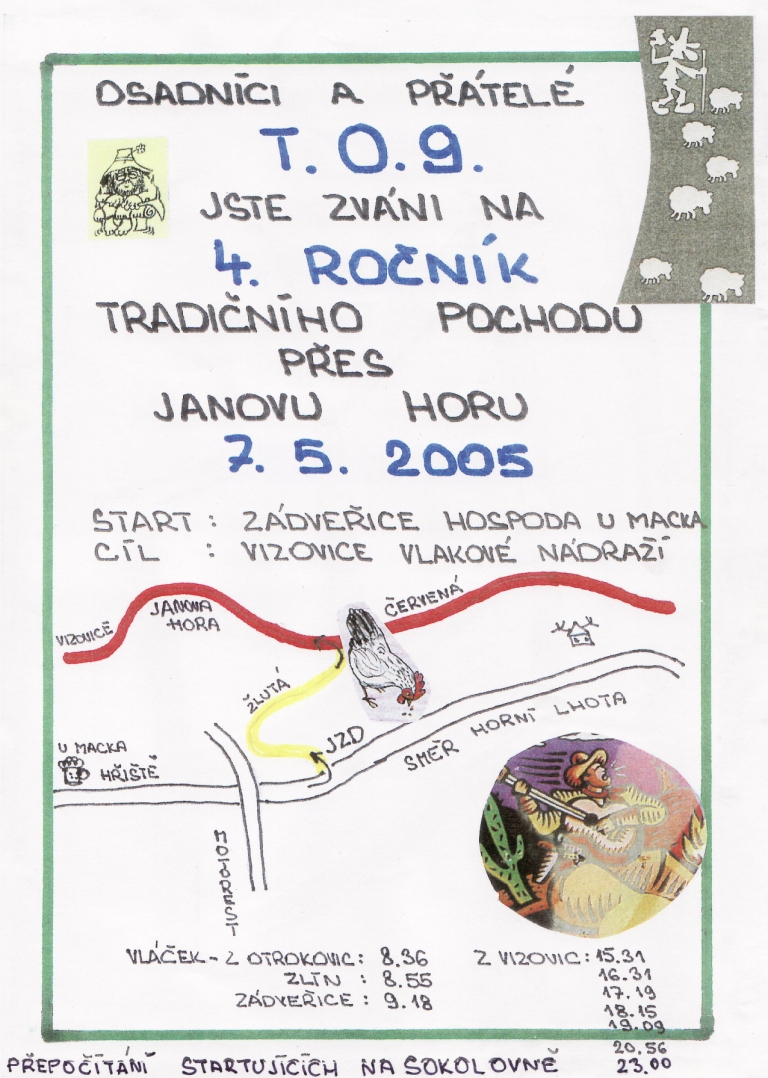 OSADNÍCI A PŘÁTELÉ
T. O. 9.
JSTE ZVÁNI NA
4. ROČNÍK
TRADIČNÍHO POCHODU
PŘES
JANOVU HORU
7. 5. 2005
START : ZÁDVEŘICE HOSPODA U MACKA
CÍL : VIZOVICE VLAKOVÉ NÁDRAŽÍ
VIZOVICE
JANOVA
HORA
ČERVENÁ
ŽLUTÁ
JZD
SMĚR HORNÍ LHOTA
U MACKA
HŘIŠTĚ
MOTOREST
VLÁČEK - Z OTROKOVIC : 8.36
ZLÍN : 8.55
ZÁDVEŘICE : 9.18
Z VIZOVIC : 15.31
16.31
17.19
18.15
19.09
20.56
23.00
PŘEPOČÍTÁNÍ STARTUJÍCÍCH NA SOKOLOVNĚ